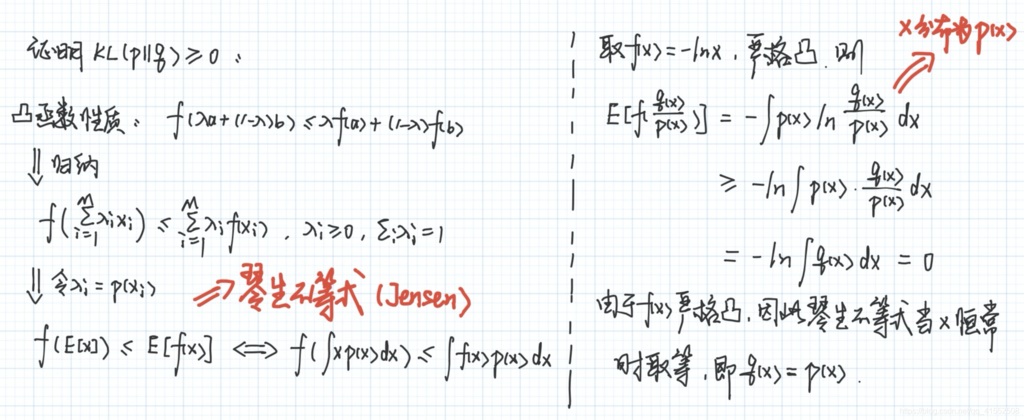 证明 KL(p||q) ≥ 0 :
凸函数性质: f(λa+(1-λ)b) ≤ λf(a)+(1-λ)f(b)
⇓ 归纳
f(∑_{i=1}^{M} λ_i x_i) ≤ ∑_{i=1}^{M} λ_i f(x_i) , λ_i ≥ 0 , ∑_i λ_i = 1
⇓ 令 λ_i = p(x_i) ⇒ 琴生不等式 (Jensen)
f(E[x]) ≤ E[f(x)] ⟺ f(∫xp(x)dx) ≤ ∫f(x)p(x)dx
x分布为p(x)
取f(x) = -lnx , 严格凸, 则
E[f(q(x)/p(x))] = -∫p(x) ln q(x)/p(x) dx
≥ -ln∫p(x)·q(x)/p(x) dx
= -ln∫q(x)dx = 0
由于f(x)严格凸, 因此琴生不等式当x恒常
时取等, 即q(x) = p(x) .